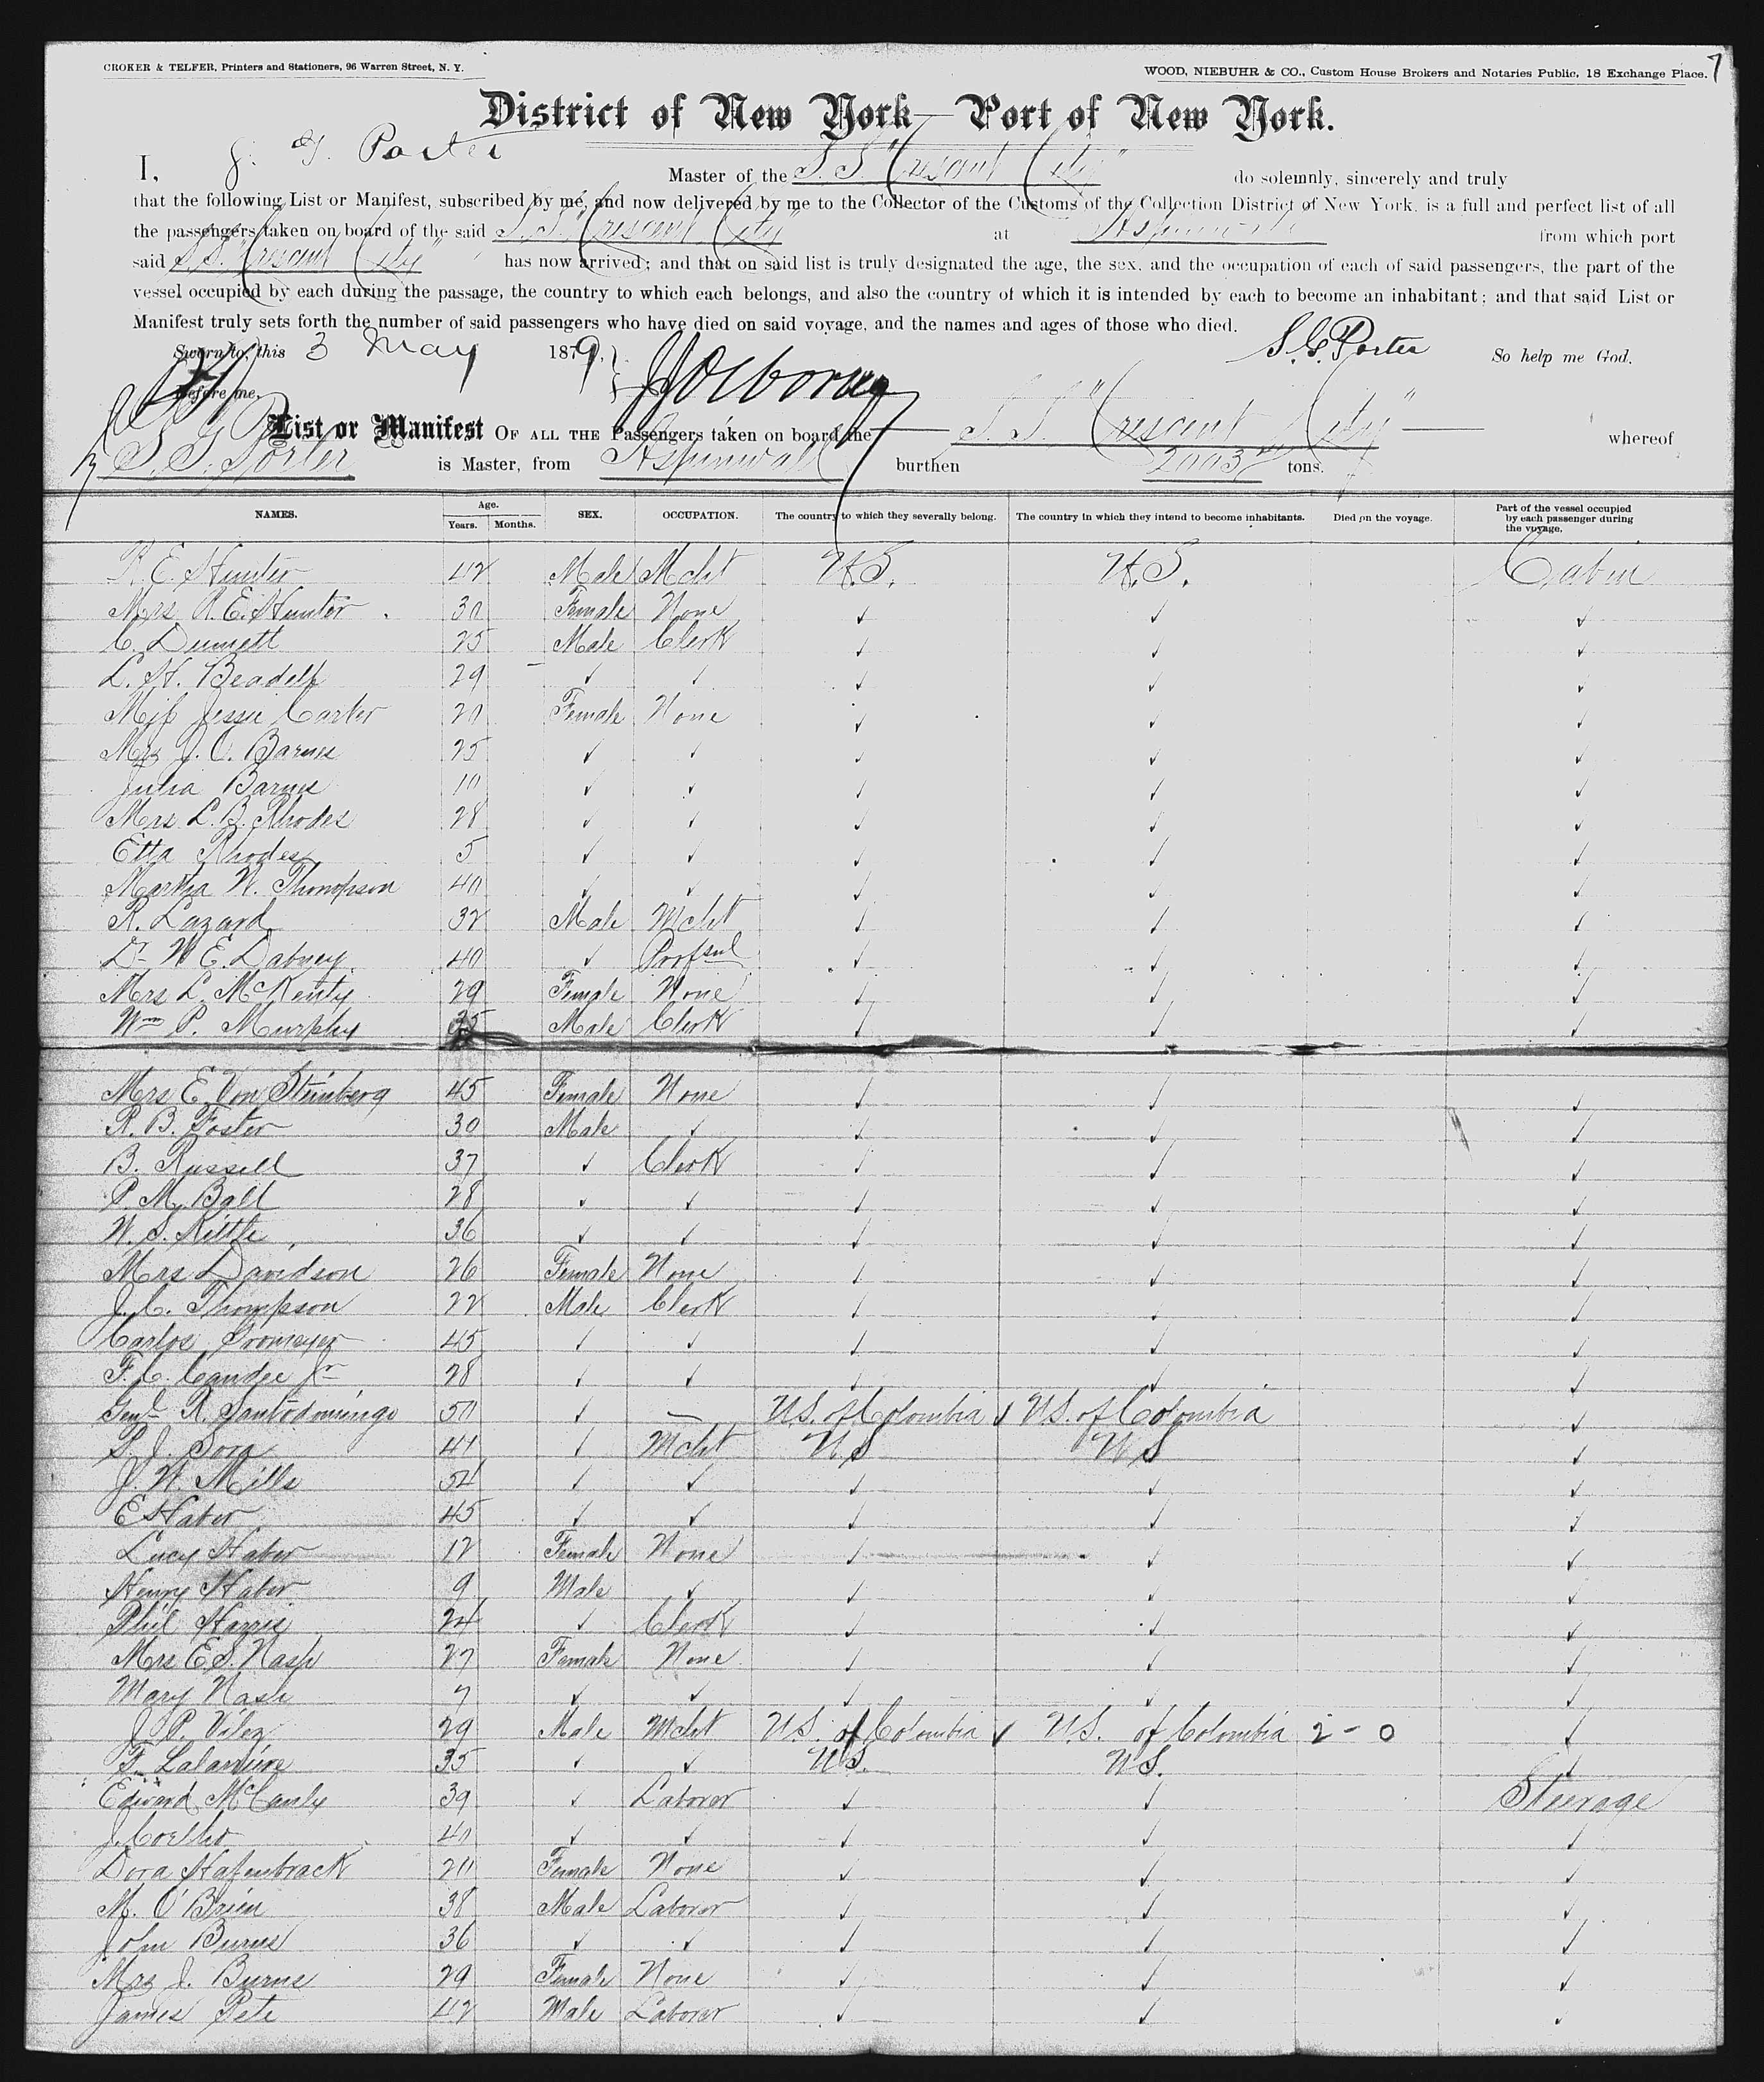 CROKER & TELFER, Printers and Stationers, 96 Warren Street, N. Y. WOOD, NIEBUHR & CO., Custom House Brokers and Notaries Public, 18 Exchange Place. 7
District of New York—Port of New York.
I, Porter Master of the S. S "Crescent City" do solemnly, sincerely and truly
that the following List or Manifest, subscribed by me, and now delivered by me to the Collector of the Customs of the Collection District of New York, is a full and perfect list of all
the passengers taken on board of the said S. S. "Crescent City" at Aspinwall from which port
said S. S. "Crescent City" has now arrived; and that on said list is truly designated the age, the sex, and the occupation of each of said passengers, the part of the
vessel occupied by each during the passage, the country to which each belongs, and also the country of which it is intended by each to become an inhabitant; and that said List or
Manifest truly sets forth the number of said passengers who have died on said voyage, and the names and ages of those who died.
Sworn to, this 3 May 1879, S. G Porter So help me God.
Before me,
List or Manifest OF ALL THE Passengers taken on board the S. S. "Crescent City" whereof
S. G. Porter is Master, from Aspinwall burthen 2003 tons.
NAMES. Age. Years. Months. SEX. OCCUPATION. The country to which they severally belong. The country in which they intend to become inhabitants. Died on the voyage. Part of the vessel occupied by each passenger during the voyage.
R. E. Hunter 42 Male Mcht U.S. U.S. Cabin
Mrs R. E. Hunter 30 Female None ✓ ✓ ✓
C. Dunnett 25 Male Clerk ✓ ✓ ✓
L. H. Beadell 29 ✓ ✓ ✓ ✓ ✓
Miss Jessie Carter 20 Female None ✓ ✓ ✓
Mrs J. C. Barnes 25 ✓ ✓ ✓ ✓ ✓
Julia Barnes 10 ✓ ✓ ✓ ✓ ✓
Mrs L. B. Rhodes 28 ✓ ✓ ✓ ✓ ✓
Etta Rhodes 5 ✓ ✓ ✓ ✓ ✓
Martha W. Thompson 40 ✓ ✓ ✓ ✓ ✓
R. Lazard 32 Male Mcht ✓ ✓ ✓
Dr W E. Dabney 40 ✓ ✓ ✓ ✓
Mrs L. McKenty 29 Female None ✓ ✓ ✓
Wm P. Murphy 35 Male Clerk ✓ ✓ ✓
Mrs E. Von Steinberg 45 Female None ✓ ✓ ✓
R. B. Foster 30 Male ✓ ✓ ✓ ✓
B. Russell 37 ✓ Clerk ✓ ✓ ✓
P. M. Ball 28 ✓ ✓ ✓ ✓ ✓
W. S. Kittle 36 ✓ ✓ ✓ ✓ ✓
Mrs Davidson 26 Female None ✓ ✓ ✓
J. C. Thompson 22 Male Clerk ✓ ✓ ✓
Carlos 45 ✓ ✓ ✓ ✓ ✓
F. C. Candee Jr 28 ✓ ✓ ✓ ✓ ✓
Genl R. Santodomingo 50 ✓ — U.S. of Colombia ✓ U.S. of Colombia ✓
41 ✓ Mcht U S U S ✓
J. W. Mills 54 ✓ ✓ ✓ ✓ ✓
E Haber 45 ✓ ✓ ✓ ✓ ✓
Lucy Haber 12 Female None ✓ ✓ ✓
Henry Haber 9 Male ✓ ✓ ✓ ✓
Phil Harris 24 ✓ Clerk ✓ ✓ ✓
Mrs E. S. Nash 27 Female None ✓ ✓ ✓
Mary Nash 7 ✓ ✓ ✓ ✓ ✓
J. P. Vilez 29 Male Mcht U.S. of Colombia ✓ U.S. of Colombia 2 - 0 ✓
F. 35 ✓ ✓ U.S. U.S. ✓
Edward McCauly 39 ✓ Laborer ✓ ✓ Steerage
J. Coelho 40 ✓ ✓ ✓ ✓ ✓
Dora Hafenbrack 20 Female None ✓ ✓ ✓
M. O'Brien 38 Male Laborer ✓ ✓ ✓
John Burns 36 ✓ ✓ ✓ ✓ ✓
Mrs J. Burns 29 Female None ✓ ✓ ✓
James Pete 42 Male Laborer ✓ ✓ ✓